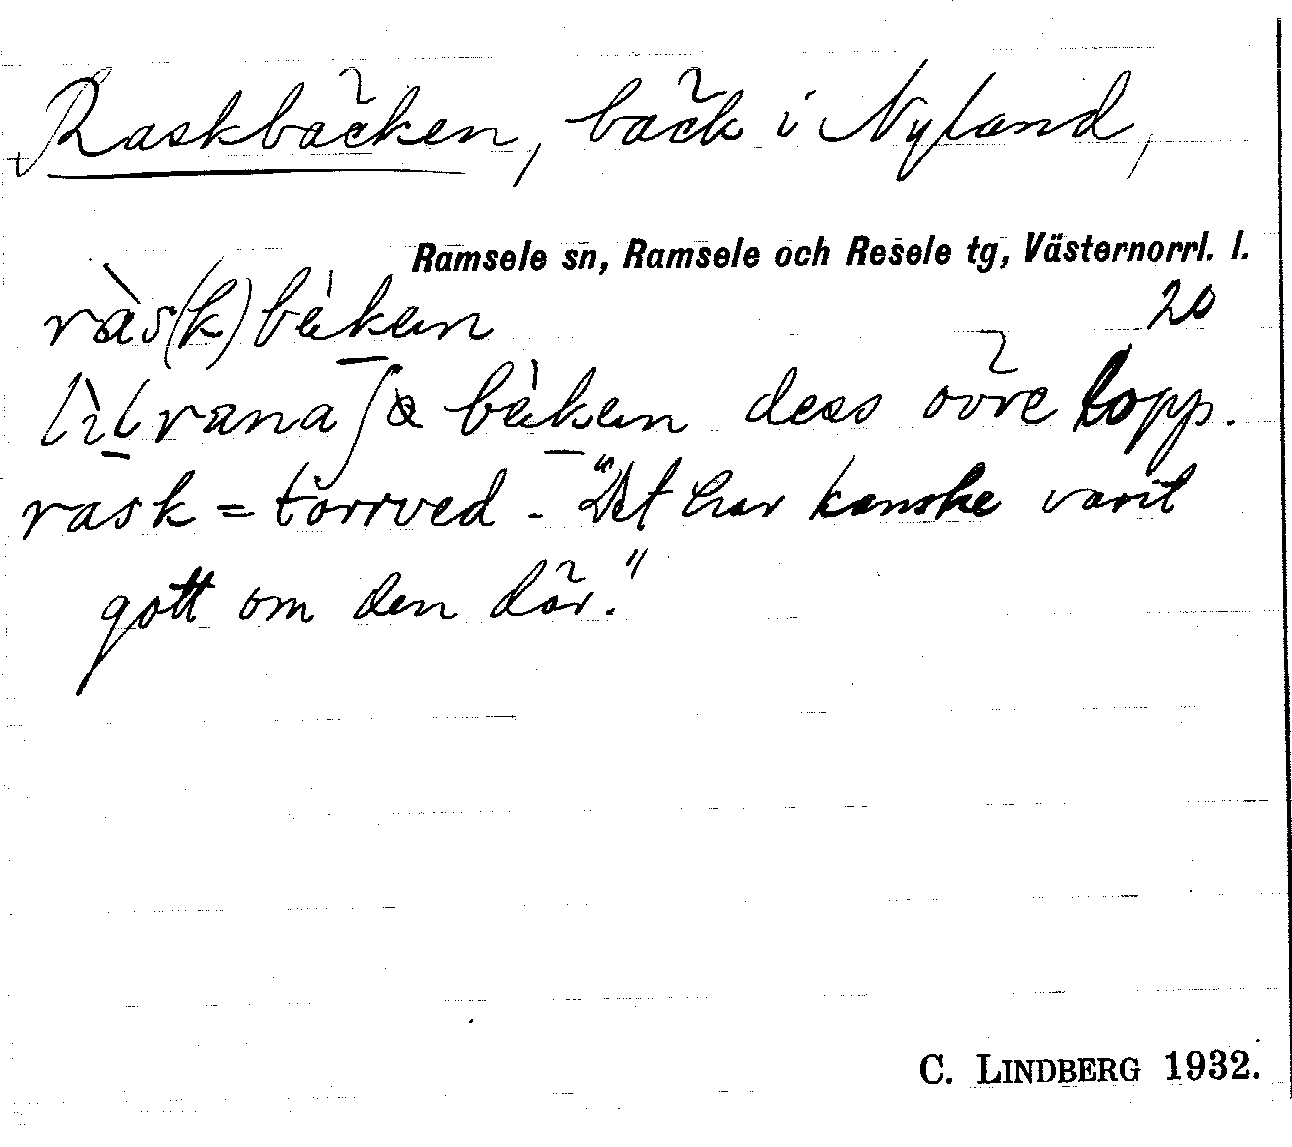 Raskbäcken, bäck i Nyland,
Ramsele sn, Ramsele och Resele tg, Västernorrl. l.
ràs(k)bèken 20
dess övre lopp.
rask = torrved - "Det har kanske varit
gott om den där."
C. LINDBERG 1932.